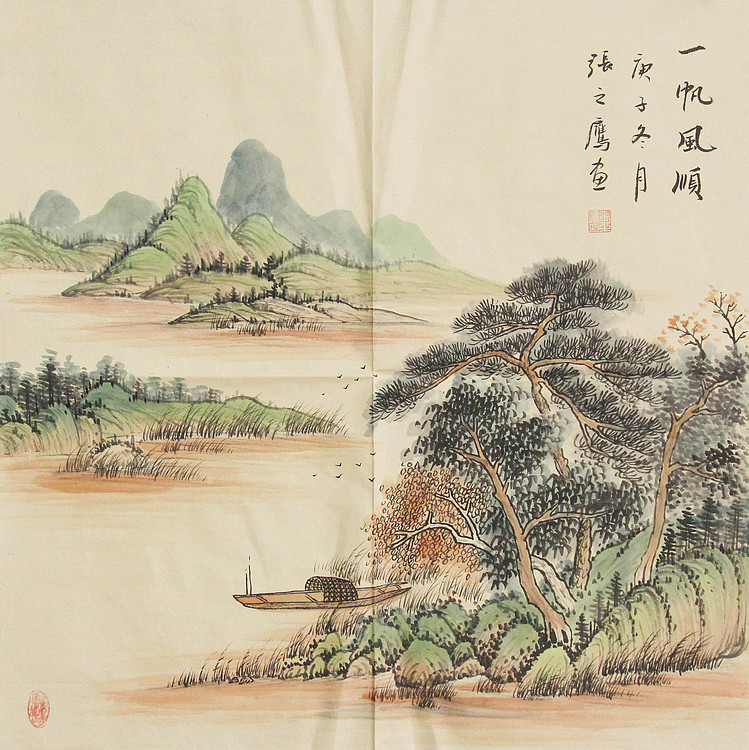 一帆風順
庚子冬月
張之鷹画